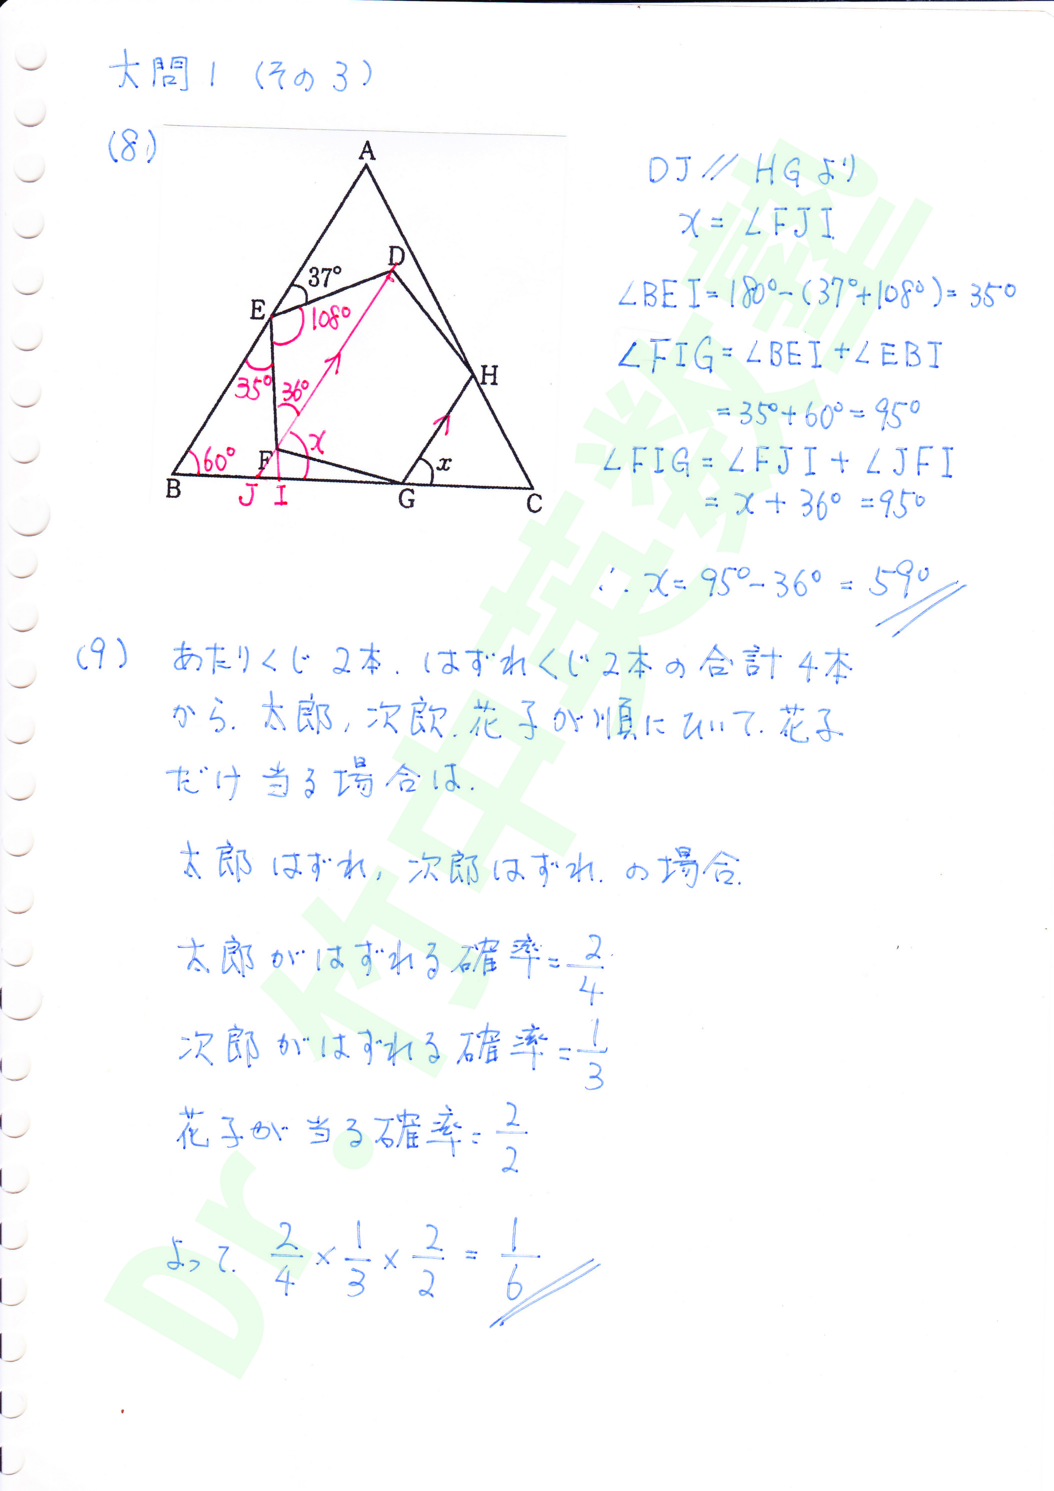 大問1 (その3)
(8)
A
D
37°
E
108°
35°
36°
H
60°
F
x
x
B
J
I
G
C
DJ // HGより
x = ∠FJI
∠BEI = 180° - (37° + 108°) = 35°
∠FIG = ∠BEI + ∠EBI
= 35° + 60° = 95°
∠FIG = ∠FJI + ∠JFI
= x + 36° = 95°
∴ x = 95° - 36° = 59°
(9) あたりくじ2本、はずれくじ2本の合計4本
から、太郎,次郎、花子が順にひいて、花子
だけ当る場合は、
太郎はずれ,次郎はずれ、の場合、
太郎がはずれる確率 = 2/4
次郎がはずれる確率 = 1/3
花子が当る確率 = 2/2
よって、 2/4 × 1/3 × 2/2 = 1/6
Dr.竹中英数塾